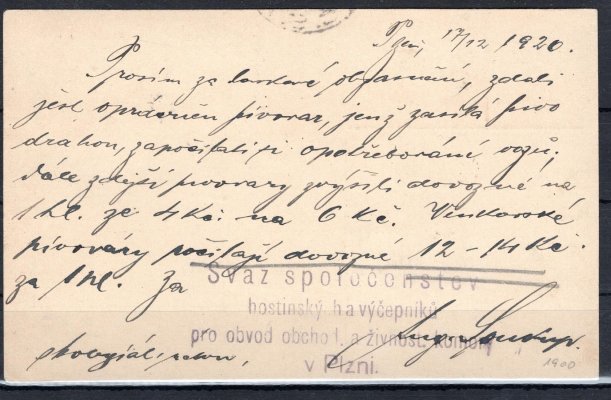 Plzeň, 17/12 1920.
Prosím za laskavé objasnění, zdali
jest oprávněn pivovar, jenž zasílá pivo
drahou, započítati si opotřebování vozů;
dále zdejší pivovary zvýšili dovozné na
1 hl. ze 4 Kč. na 6 Kč. Venkovské
pivovary počítají dovozné 12-14 Kč.
za 1 hl. Za
Svaz společenstev
hostinských a výčepníků
pro obvod obchod. a živnost. komory
v Plzni.
1900